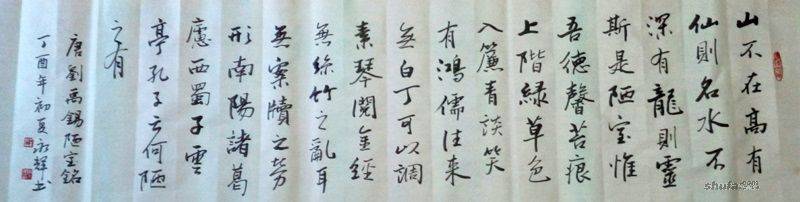 山不在高有
仙則名水不
深有龍則靈
斯是陋室惟
吾德馨苔痕
上階綠草色
入簾青談笑
有鴻儒往来
無白丁可以調
素琴閱金經
無絲竹之亂耳
無案牘之勞
形南陽諸葛
廬西蜀子雲
亭孔子云何陋
之有
唐劉禹錫陋室銘
丁酉年初夏书